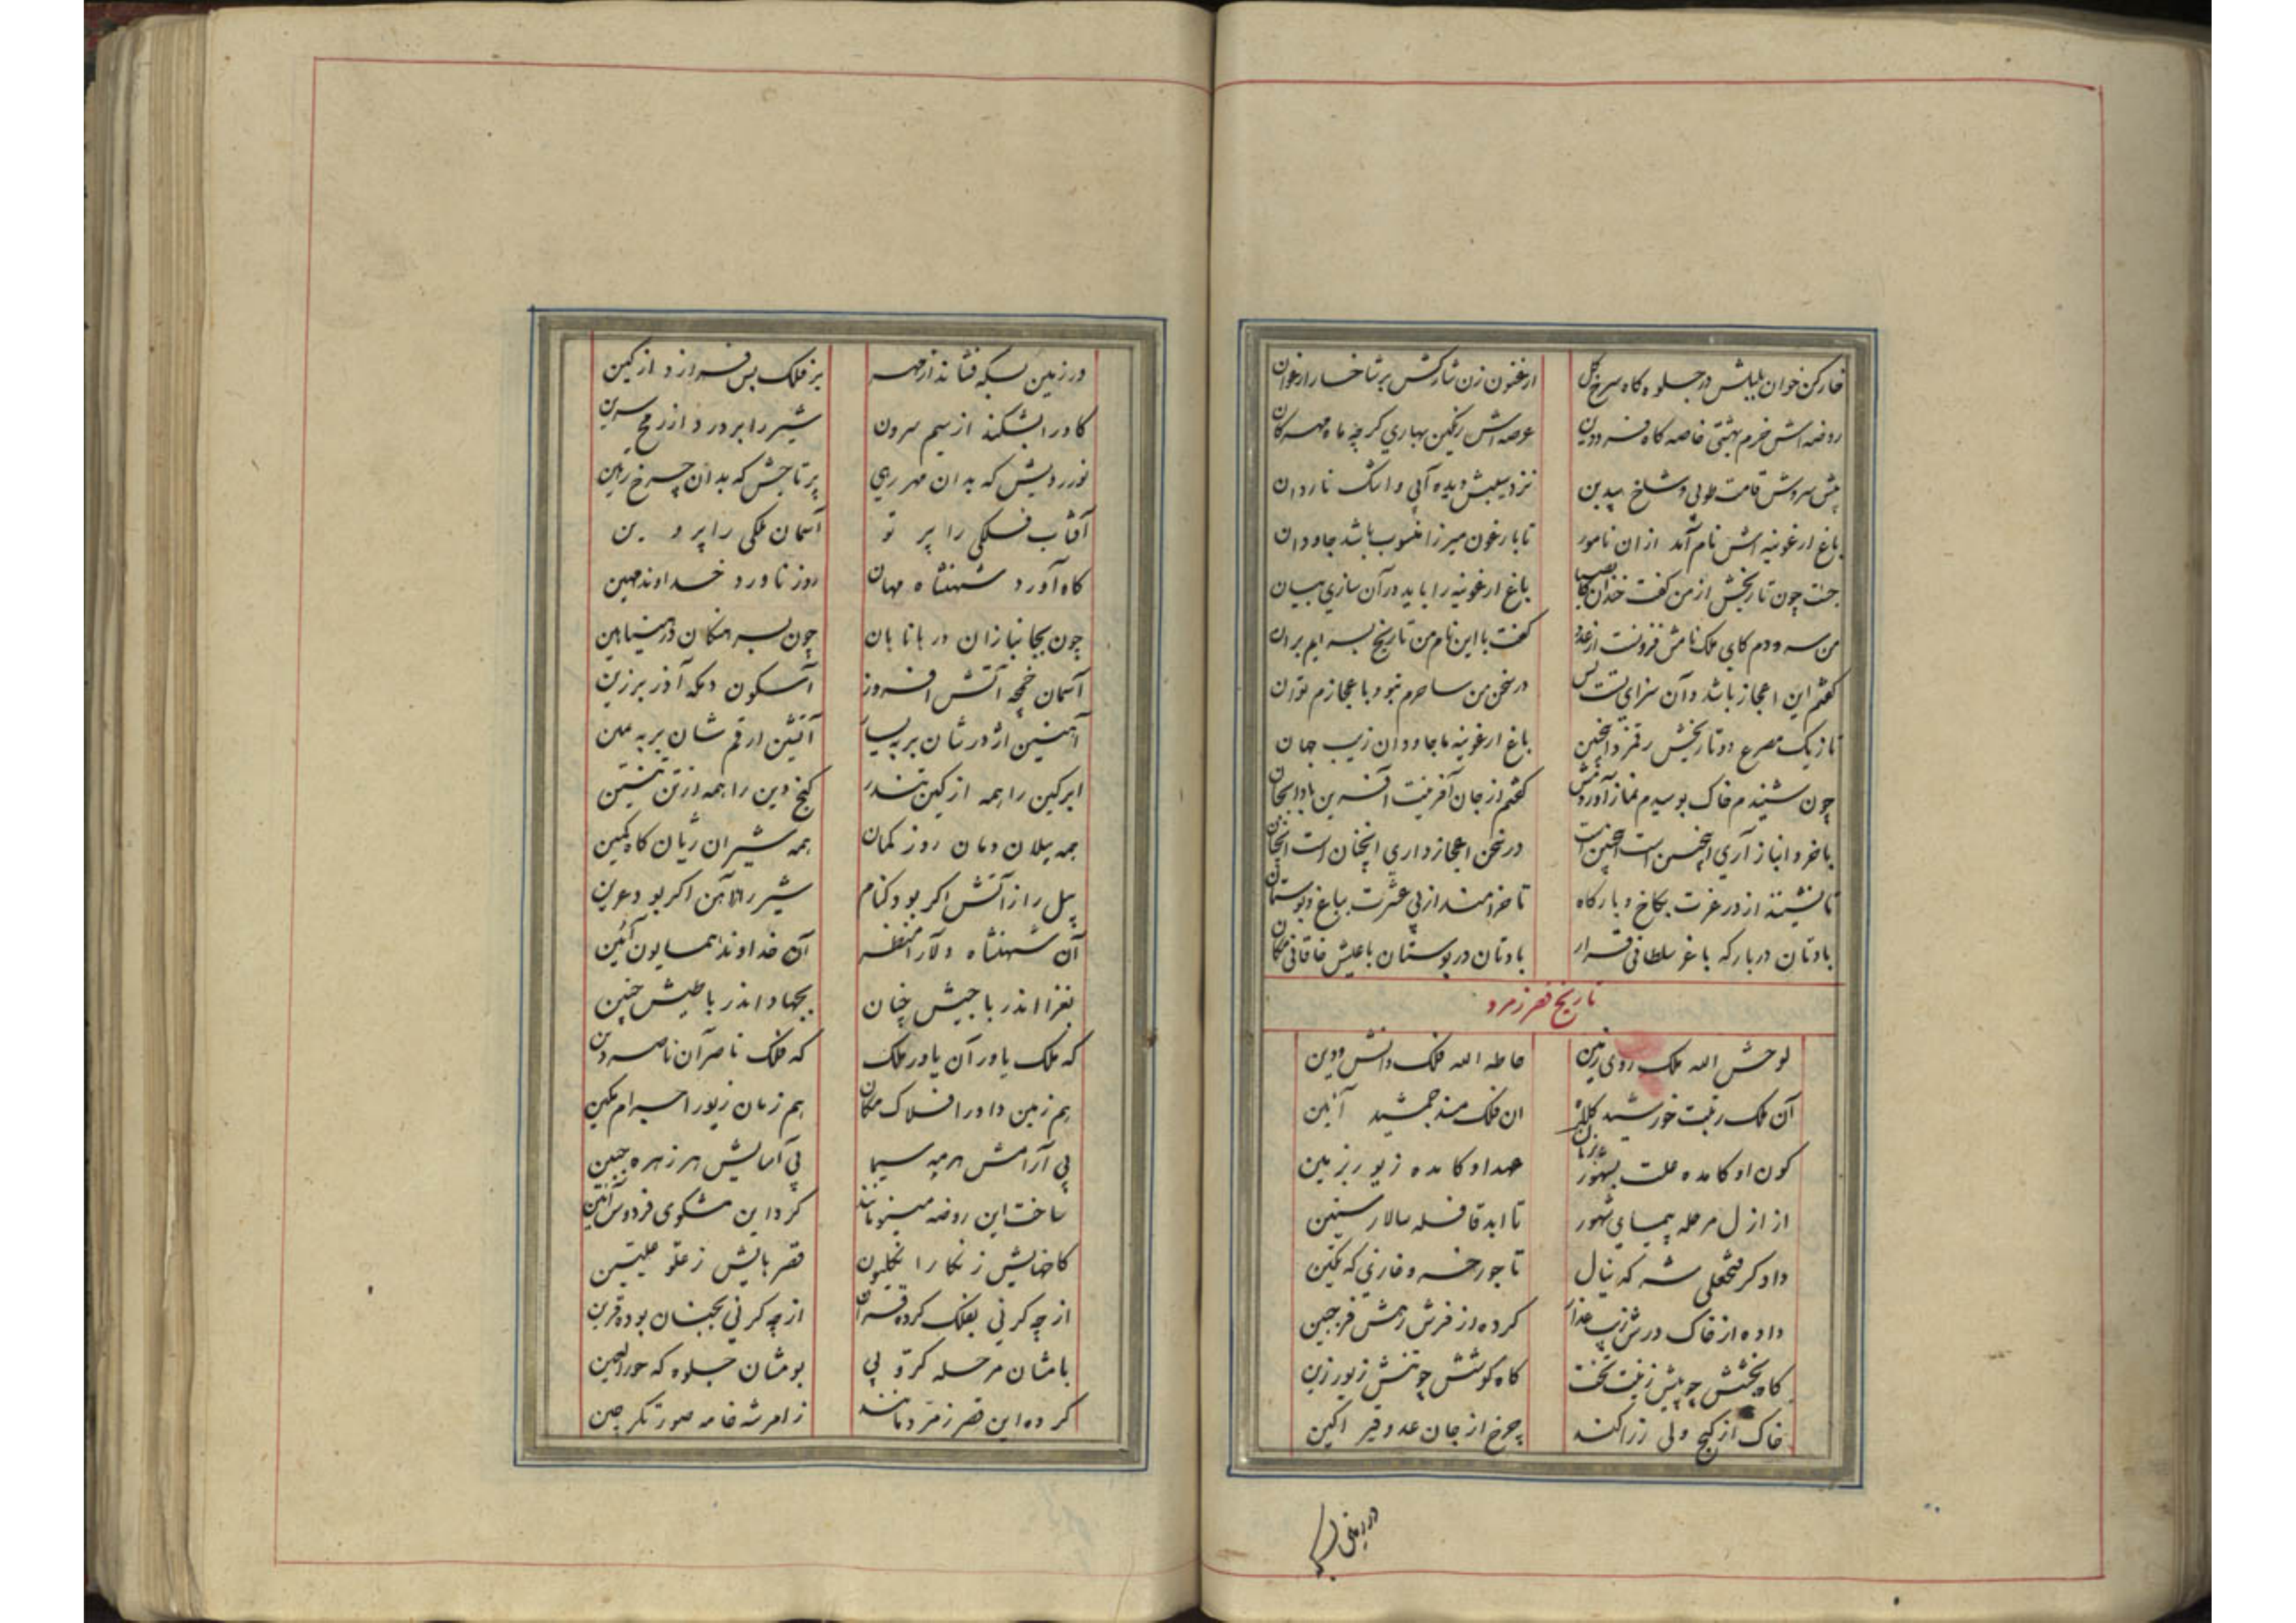 خارکن خوان بلبلش در جلوه کاه سرخ کل
ارغنون زن شارکش بر شاخسار ارغوان
روضه اش خرم بهشتی خاصه کاه فرودین
عرصه اش رنکین بهاری کرچه ماه مهرکان
پیش سروش قامت طوبی و شاخ بیدبن
نزد سیبش دیده آبی و اشک ناردان
باغ ارغونیه اش نام آمد از ان نامور
تا بارغون میرزا منسوب باشد جاودان
جست چون تاریخش از من کفت خندان
باغ ارغونیه را باید در آن سازی بیان
من سرودم کای ملک نامش فزونست از عدد
کفت با این نام من تاریخ بسرایم بران
کفتم این اعجاز باشد و آن سزای تست بس
در سخن من ساحرم نبود باعجازم توان
تا ز یک مصرع دو تاریخش رقمزد اینچنین
باغ ارغونیه با جاودان زیب جهان
چون شنیدم خاک بوسیدم نماز آوردمش
کفتم از جان آفرینت آفرین بادا بجان
با خرد انباز آری اینچنین است اینچنین است
در سخن اعجاز داری آنچنان است آنچنان
تا نشینند از در عزت بکاخ و بارکاه
تا خرامند از پی عشرت بباغ و بوستان
بادتان در بارکه با عز سلطانی قرار
بادتان در بوستان با عیش خاقانی مکان
تاریخ قصر زمرد
لوحش الله ملک روی زمین
حاطه الله فلک دانش و دین
آن ملک رتبت خورشید کلاه
ان فلک مسند جمشید آئین
کون او کامده علت بظهور
عهد او کامده زیور بزمین
از ازل مرحله پیمای شهور
تا ابد قافله سالار سنین
دادکر فتحعلی شه که ینال
تاجور خسرو غازی که تکین
داده از خاک درش زیب عذار
کرده از فرش رهش فر جبین
کاه بخشش چو پیش زینت تخت
کاه کوشش چو تنش زیور زین
خاک از کنج ولی زر اکند
چرخ از جان عدو قیر اکین
در زمین بسکه فشاند از مهر
بر فلک بس فرازد از کین
کاو را بشکند از سم سرون
شیر را بر درد از رمح سرین
نور رویش که بدان مهر رهی
پر تاجش که بدان چرخ رهین
آفتاب فلکی را پر تو
آسمان ملکی را پر و ین
کاه آورد شهنشاه مهان
روز ناورد خداوند مهین
چون بجا نبازان در باتابان
چون بسرهنکان در هیناهین
آسمان خمچه آتش افروز
آسکون دمکه آذر برزین
آهنین اژدرشان بر به یسار
آتشین ارقم شان بر به یمین
ابر کین را همه از کین تندر
کنج دین را همه از تن تنین
همه پیلان دمان روز کمان
همه شیران ژیان کاه کمین
پیل را ز آتش اکر بود کنام
شیر را ز آهن اکر بود عرین
آن شهنشاه دلارا منظر
آن خداوند همایون آئین
بغزا اندر با جیش چنان
بجهاد اندر با طیش چنین
که ملک یاور آن یاور ملک
که فلک ناصر آن ناصر دین
هم زمین داور افلاک مکان
هم زمان زیور اجرام مکین
پی آرامش هر مه سیما
پی آسایش هر زهره جبین
ساخت این روضه مینو مانند
کرد این مشکوی فردوس آئین
کاخهایش ز نکارا نکلیون
قصرهایش ز علو علیین
از چه کر نی بفلک کرده قران
از چه کر نی بجنان بوده قرین
بامشان مرحله کر تو بی
بومشان جلوه که حورالعین
کرده این قصر زمرد مانند
ز امر شه خامه صورتکر چین